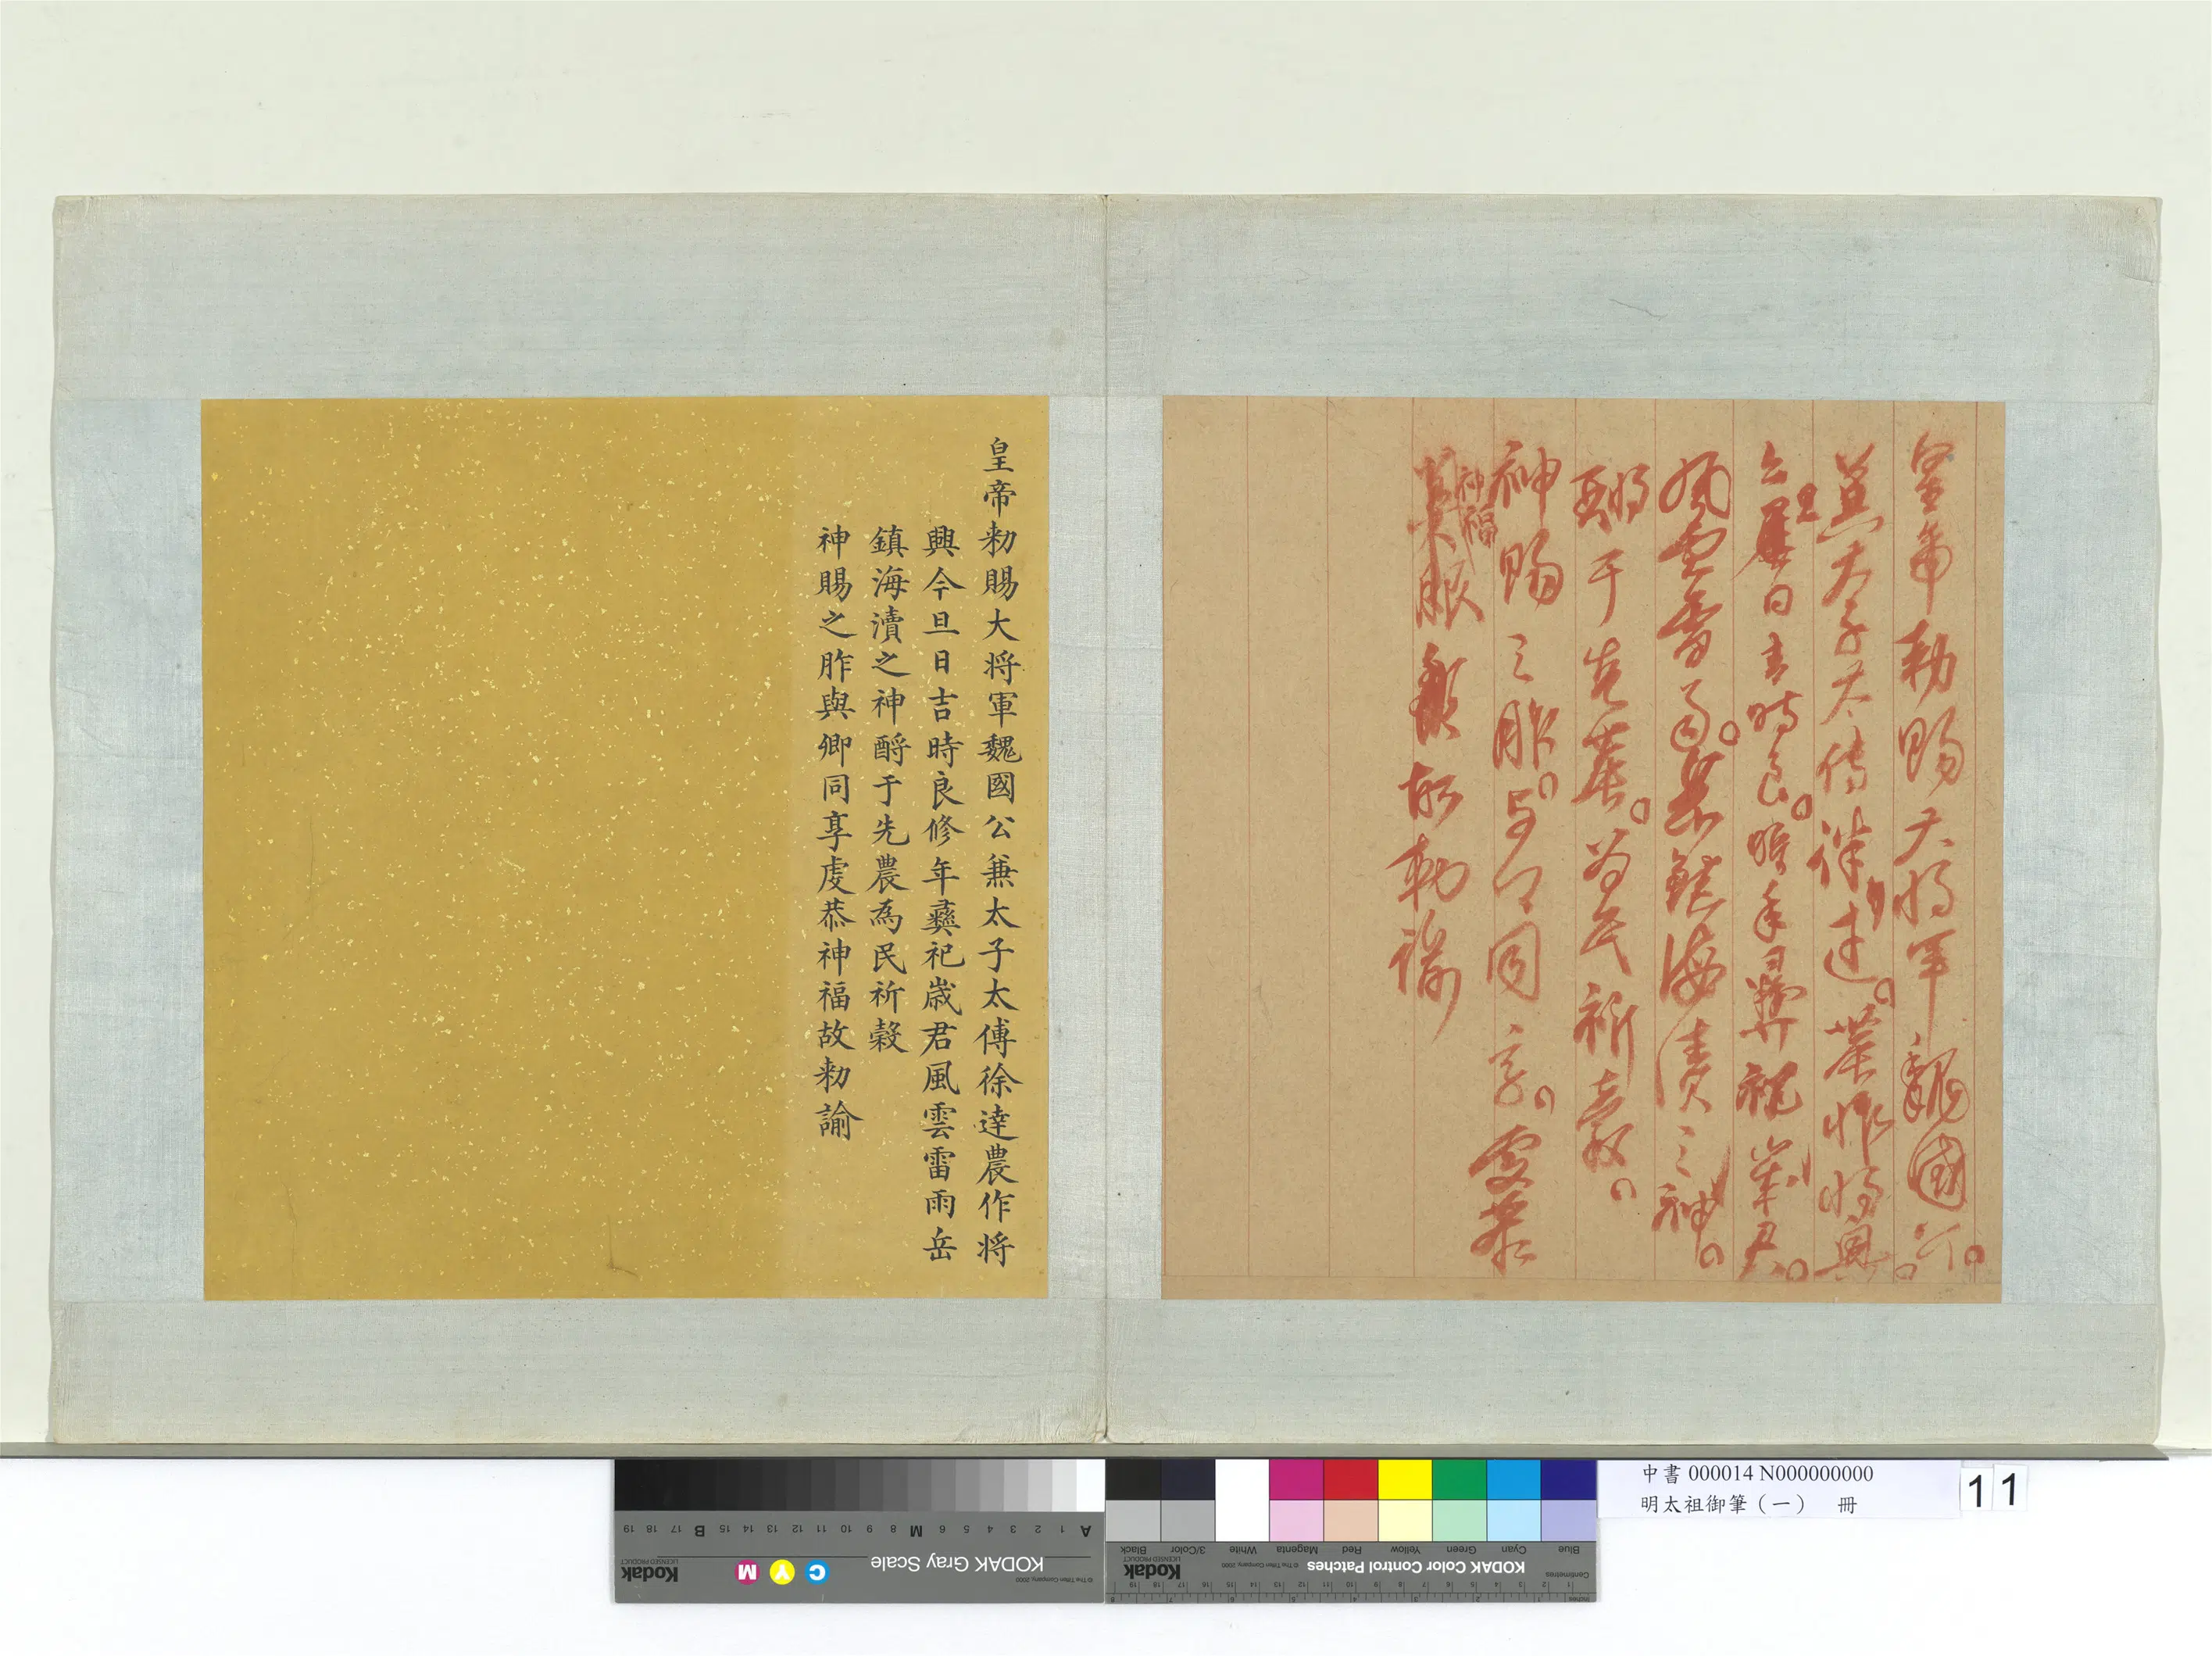 皇帝勅賜大将軍魏國公
兼太子太傅徐達農作将興
今旦日吉時良脩年彝祀歲君
風雲雷雨岳鎮海瀆之神
酹于先農為民祈穀
神賜之胙与卿同享虔恭
神福
故勅諭
皇帝勑賜大将軍魏國公兼太子太傅徐達農作将
興今旦日吉時良修年彝祀歲君風雲雷雨岳
鎮海瀆之神酹于先農為民祈穀
神賜之胙與卿同享虔恭神福故勑諭
中書 000014 N000000000
明太祖御筆（一） 冊
11
KODAK Gray Scale
Kodak
LICENSED PRODUCT
© The Tiffen Company, 2000
C Y M
A 1 2 3 4 5 6 M 8 9 10 11 12 13 14 15 B 17 18 19
KODAK Color Control Patches
Kodak
LICENSED PRODUCT
© The Tiffen Company, 2000
Blue Cyan Green Yellow Red Magenta White 3/Color Black
Centimetres
Inches